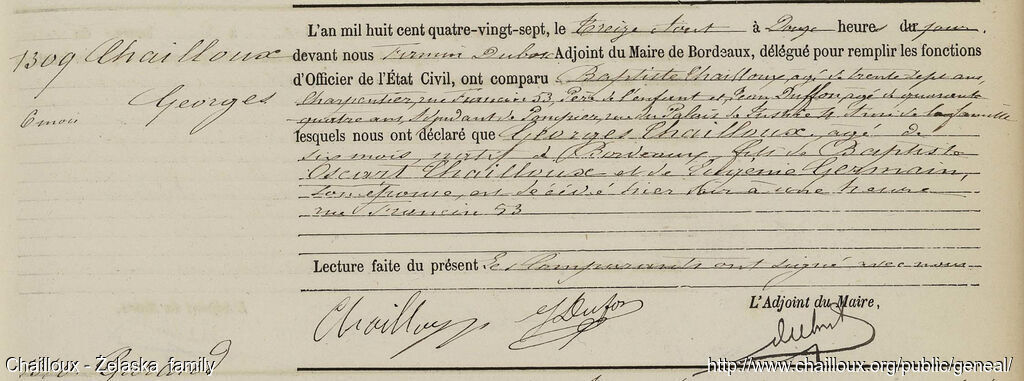 1309 Chailloux
Georges
6 mois
L'an mil huit cent quatre-vingt-sept, le Treize Aout à Onze heures du jour.
devant nous Firmin Dubos Adjoint du Maire de Bordeaux, délégué pour remplir les fonctions
d'Officier de l'État Civil, ont comparu Baptiste Chailloux, agé de trente sept ans,
Charpentier, rue Francin 53, Père de l'enfant et Jean Duffou, agé de quarante
quatre ans, de Pompier, rue du Palais de Justice 4, Ami de la famille
lesquels nous ont déclaré que Georges Chailloux, agé de
six mois, natif de Bordeaux, fils de Baptiste
Oscart Chailloux et de Eugénie Germain,
son épouse, est décédé hier soir à une heure
rue Francin 53
Lecture faite du présent Les Comparants ont signé avec nous
L'Adjoint du Maire,
Chailloux
Chailloux - Żelaska family
http://www.chailloux.org/public/geneal/